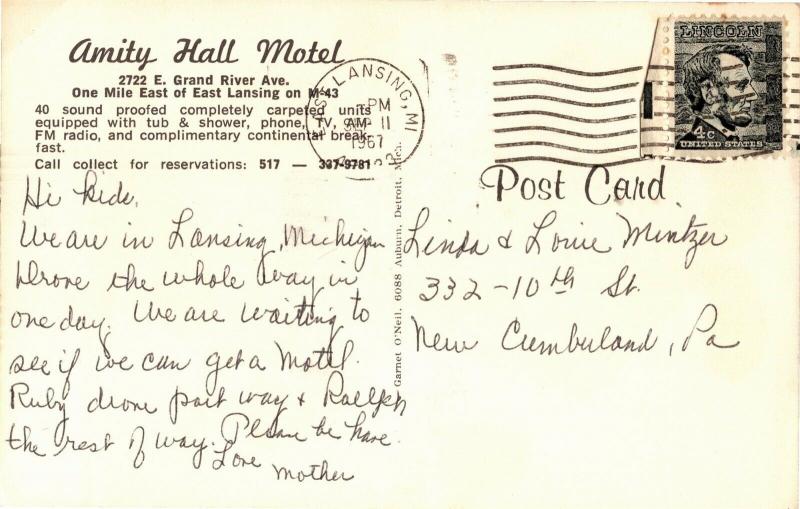 Amity Hall Motel
2722 E. Grand River Ave.
One Mile East of East Lansing on M-43
40 sound proofed completely carpeted units
equipped with tub & shower, phone, TV, AM-
FM radio, and complimentary continental break-
fast.
Call collect for reservations: 517 — 337-9781
Hi Kids,
We are in Lansing, Michigan
Drove the whole way in
one day. We are waiting to
see if we can get a Motel.
Ruby drove part way & Raelph
the rest of way. Please be have.
Love
Mother
Garnet O'Neil, 6088 Auburn, Detroit, Mich.
LANSING, MI
PM
11
1967
LINCOLN
4c
UNITED STATES
Post Card
Linda & Louie Mintzer
332-10th St.
New Cumberland, Pa